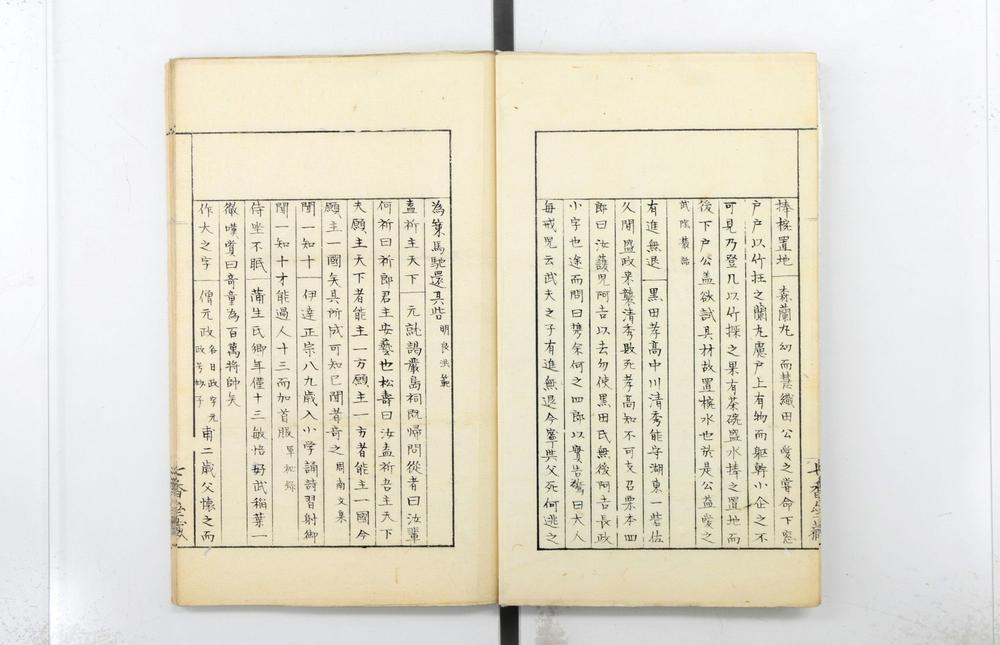 捧椀置地 森蘭丸幼而慧織田公愛之嘗命下窓
戸戸以竹拄之蘭丸慮戸上有物而軀幹小企之不
可見乃登几以竹探之果有茶碗盛水捧之置地而
後下戸公蓋欲試其材故置椀水也於是公益愛之
武隠叢話
有進無退 黒田孝高中川清秀能守湖東一砦佐
久間盛政来襲清秀敗死孝高知不可支召栗本四
郎曰汝護児阿吉以去勿使黒田氏無後阿吉長政
小字也途而問曰携余何之四郎以實告驚曰大人
毎戒児云武夫之子有進無退今寧與父死何逃之
為策馬馳還其砦 明良洪範
盍祈主天下 元就謁嚴島祠既帰問從者曰汝輩
何祈曰祈郎君主安藝也松壽曰汝盍祈吾主天下
夫願主天下者能主一方願主一方者能主一國今
願主一國矣其所成可知已聞者奇之 周南文集
聞一知十 伊達正宗八九歳入小学誦詩習射御
聞一知十才能過人十三而加首服
侍坐不眠 蒲生氏郷年僅十三敏悟好武稲葉一
徹嘆賞曰奇童為百萬将帥矣
作大之字 僧元政 名日政字元政 甫二歳父懐之而